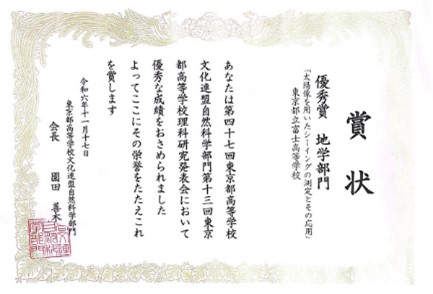 賞状
優秀賞　地学部門
「太陽像を用いたシーイングの測定とその応用」
東京都立富士高等学校
あなたは第四十七回東京都高等学校
文化連盟自然科学部門第十三回東京
都高等学校理科研究発表会において
優秀な成績をおさめられました
よってここにその栄誉をたたえこれ
を賞します
令和六年十一月十七日
東京都高等学校文化連盟自然科学部門
会長　園田　喜木